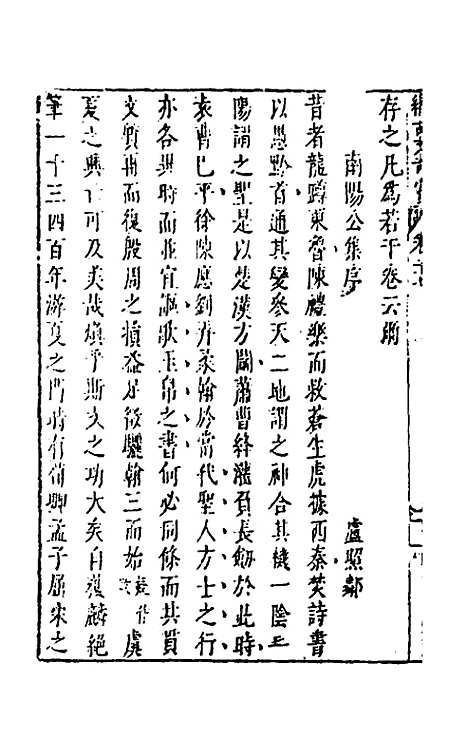 存之凡爲若干卷云爾
南陽公集序
盧照鄰
昔者龍蹲東魯陳禮樂而救蒼生虎據西秦焚詩書
以愚黔首通其變參天二地謂之神合其機一陰一
陽謂之聖是以楚漢方鬭蕭曹絳灌負長劒於此時
袁曹已平徐陳應劉弄柔翰於當代聖人方士之行
亦各異時而並宜謳歌玉帛之書何必同條而共貫
文質再而復殷周之損益足徵驪翰三而始虞
夏之興亡可及美哉煥乎斯文之功大矣自獲麟絕
筆一千三四百年游夏之門時有荀卿孟子屈宋之